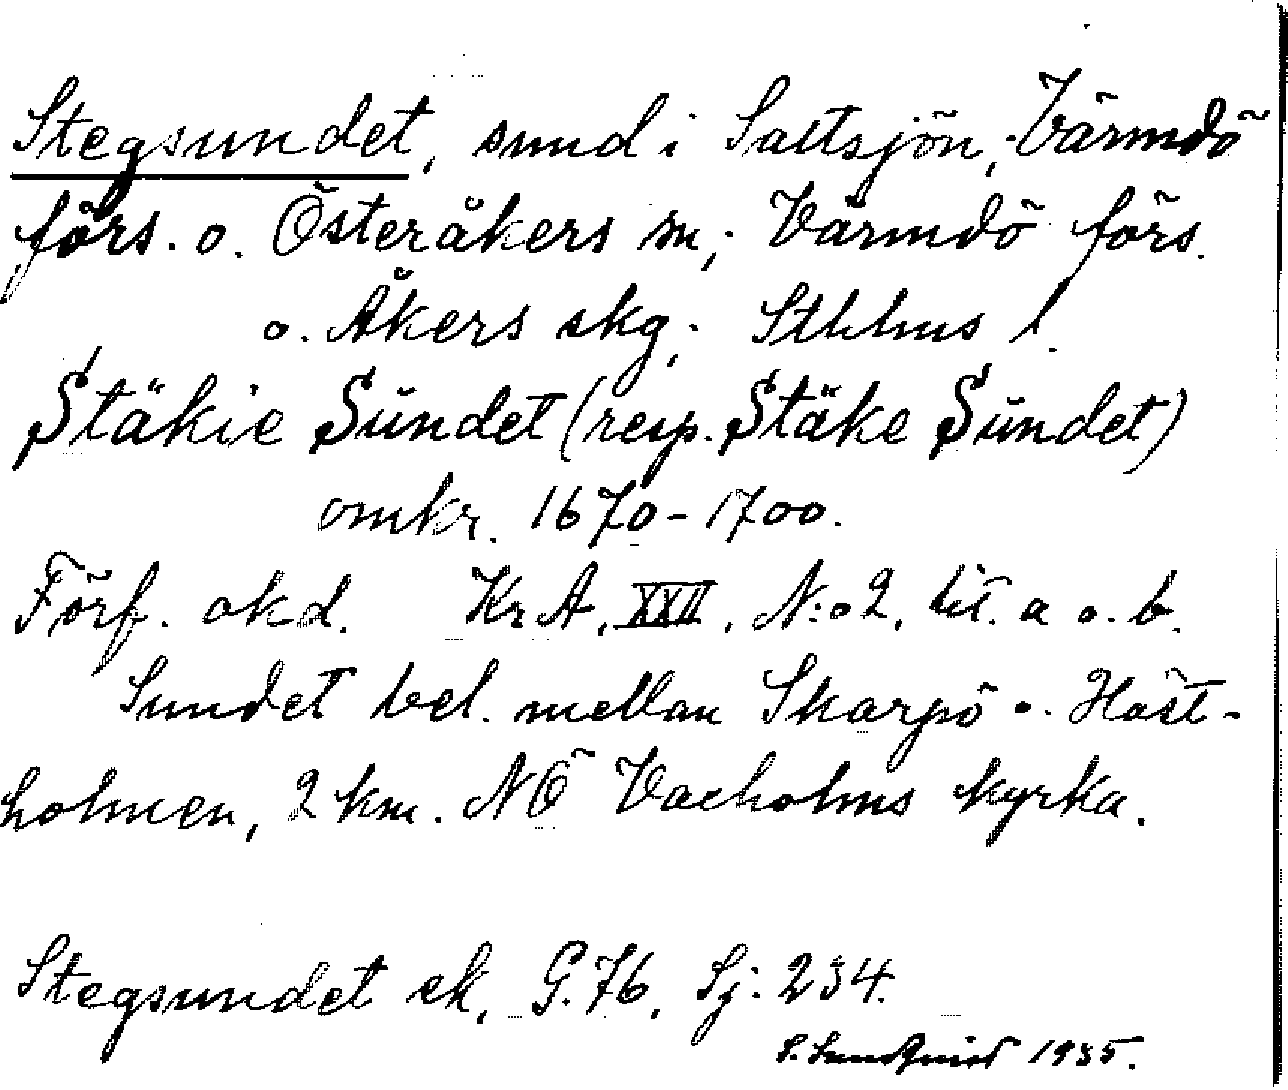 Stegsundet, sund i Saltsjön, Värmdö
förs. o. Österåkers sn; Värmdö förs.
o. Åkers skg; Sthlms l.
Stäkie Sŭndet (resp. Stäke Sŭndet)
omkr. 1670-1700.
Förf. okd. KrA, XXII, N:o 2, lit. a o. b.
Sundet bel. mellan Skarpö o. Häst-
holmen, 2 km. NÖ Vaxholms kyrka.
Stegsundet ek. G. 76, Sj: 234.
S. Sundqvist 1935.